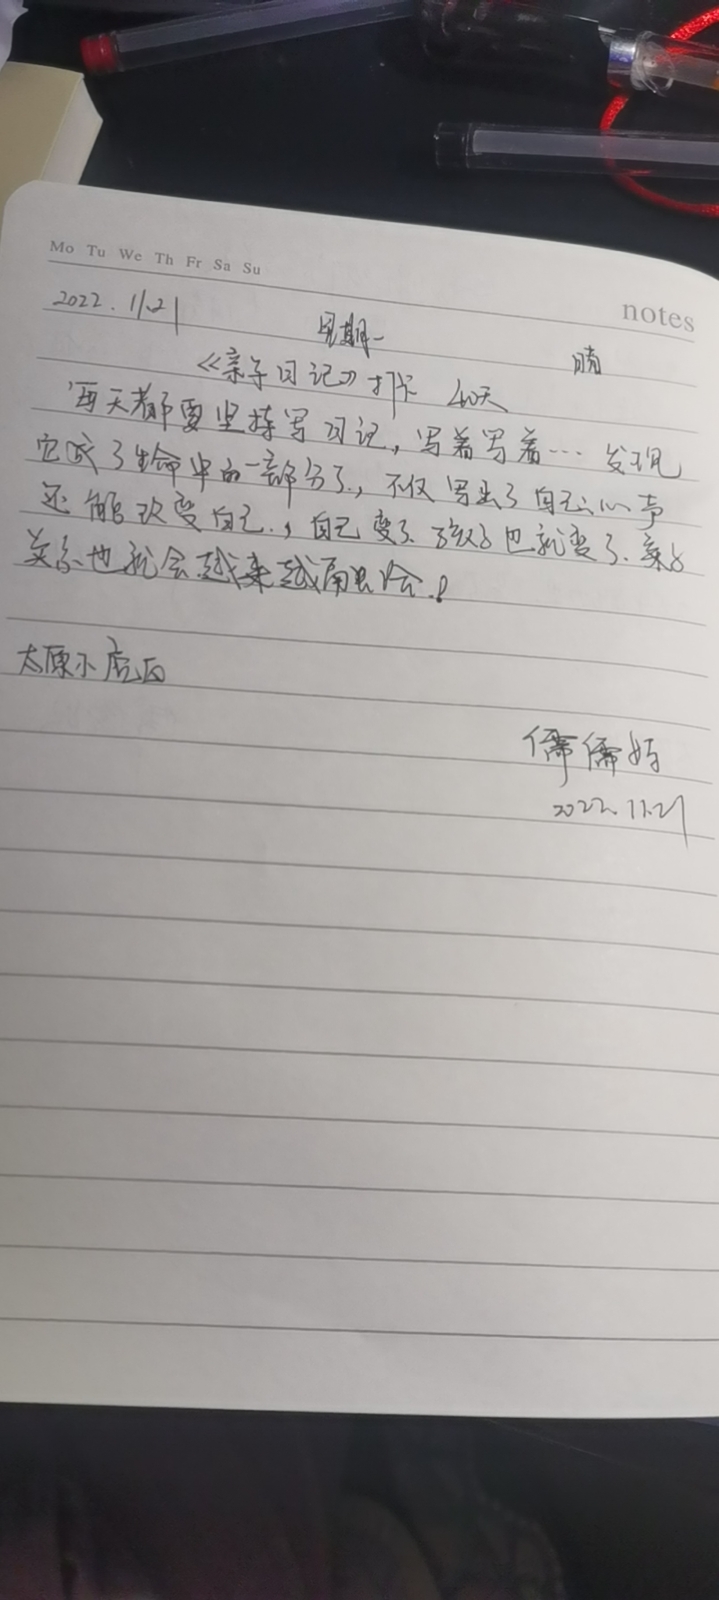 Mo Tu We Th Fr Sa Su
notes
2022.11.21 星期一 晴
《亲子日记》打卡 40天
每天都要坚持写日记,写着写着…发现
它成了生命中的一部分了,不仅写出了自己心声
还能改变自己,自己变了孩子也就变了.亲子
关系也就会越来越融洽!
太原小店区
儒儒妈
2022.11.21